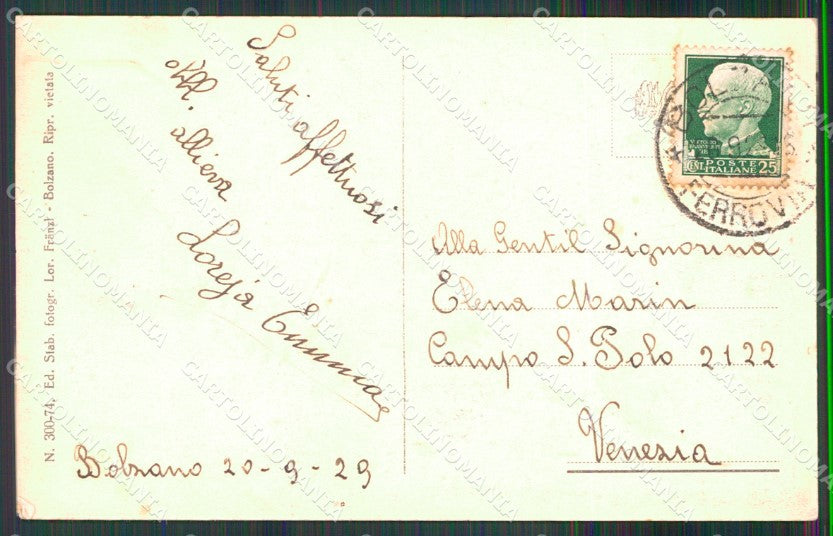 N. 300-74. Ed. Stab. fotogr. Lor. Fränzl - Bolzano. Ripr. vietata
Saluti affettuosi
allieva
Emma
Bolzano 20-9-29
POSTE
ITALIANE
CENT. 25
FERROVIA
Alla Gentil Signorina
Elena Marin
Campo S. Polo 2122
Venezia
CARTOLINOMANIA